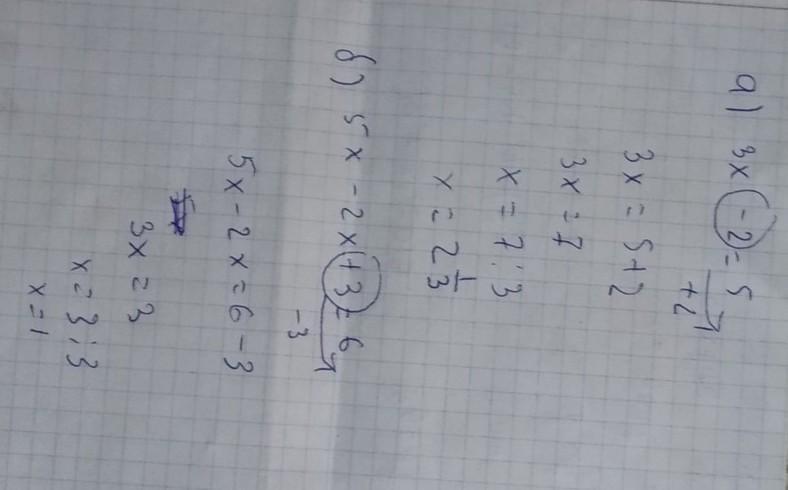 а) 3x - 2 = 5
+2
3x = 5+2
3x = 7
x = 7 : 3
x = 2 1/3
б) 5x - 2x + 3 = 6
-3
5x - 2x = 6 - 3
3x = 3
x = 3 : 3
x = 1